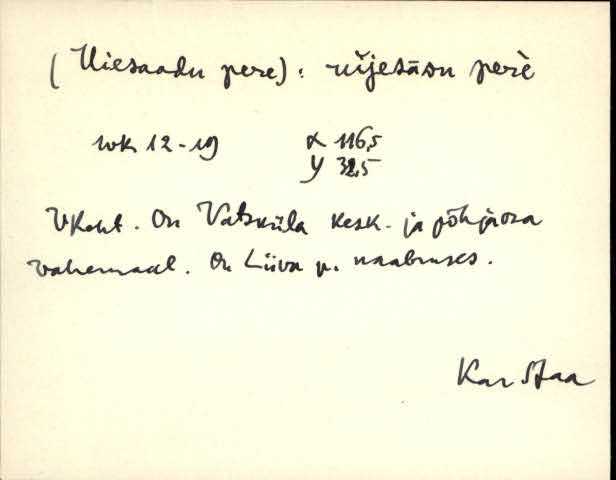 (Uiesaadu pere) : uijesāsu perè
wk 12-19 x 116,5
y 32,5
Vkoht. On Vatsküla kesk- ja põhjaosa
vahemaal. On Liiva p. naabruses.
Kar Staa